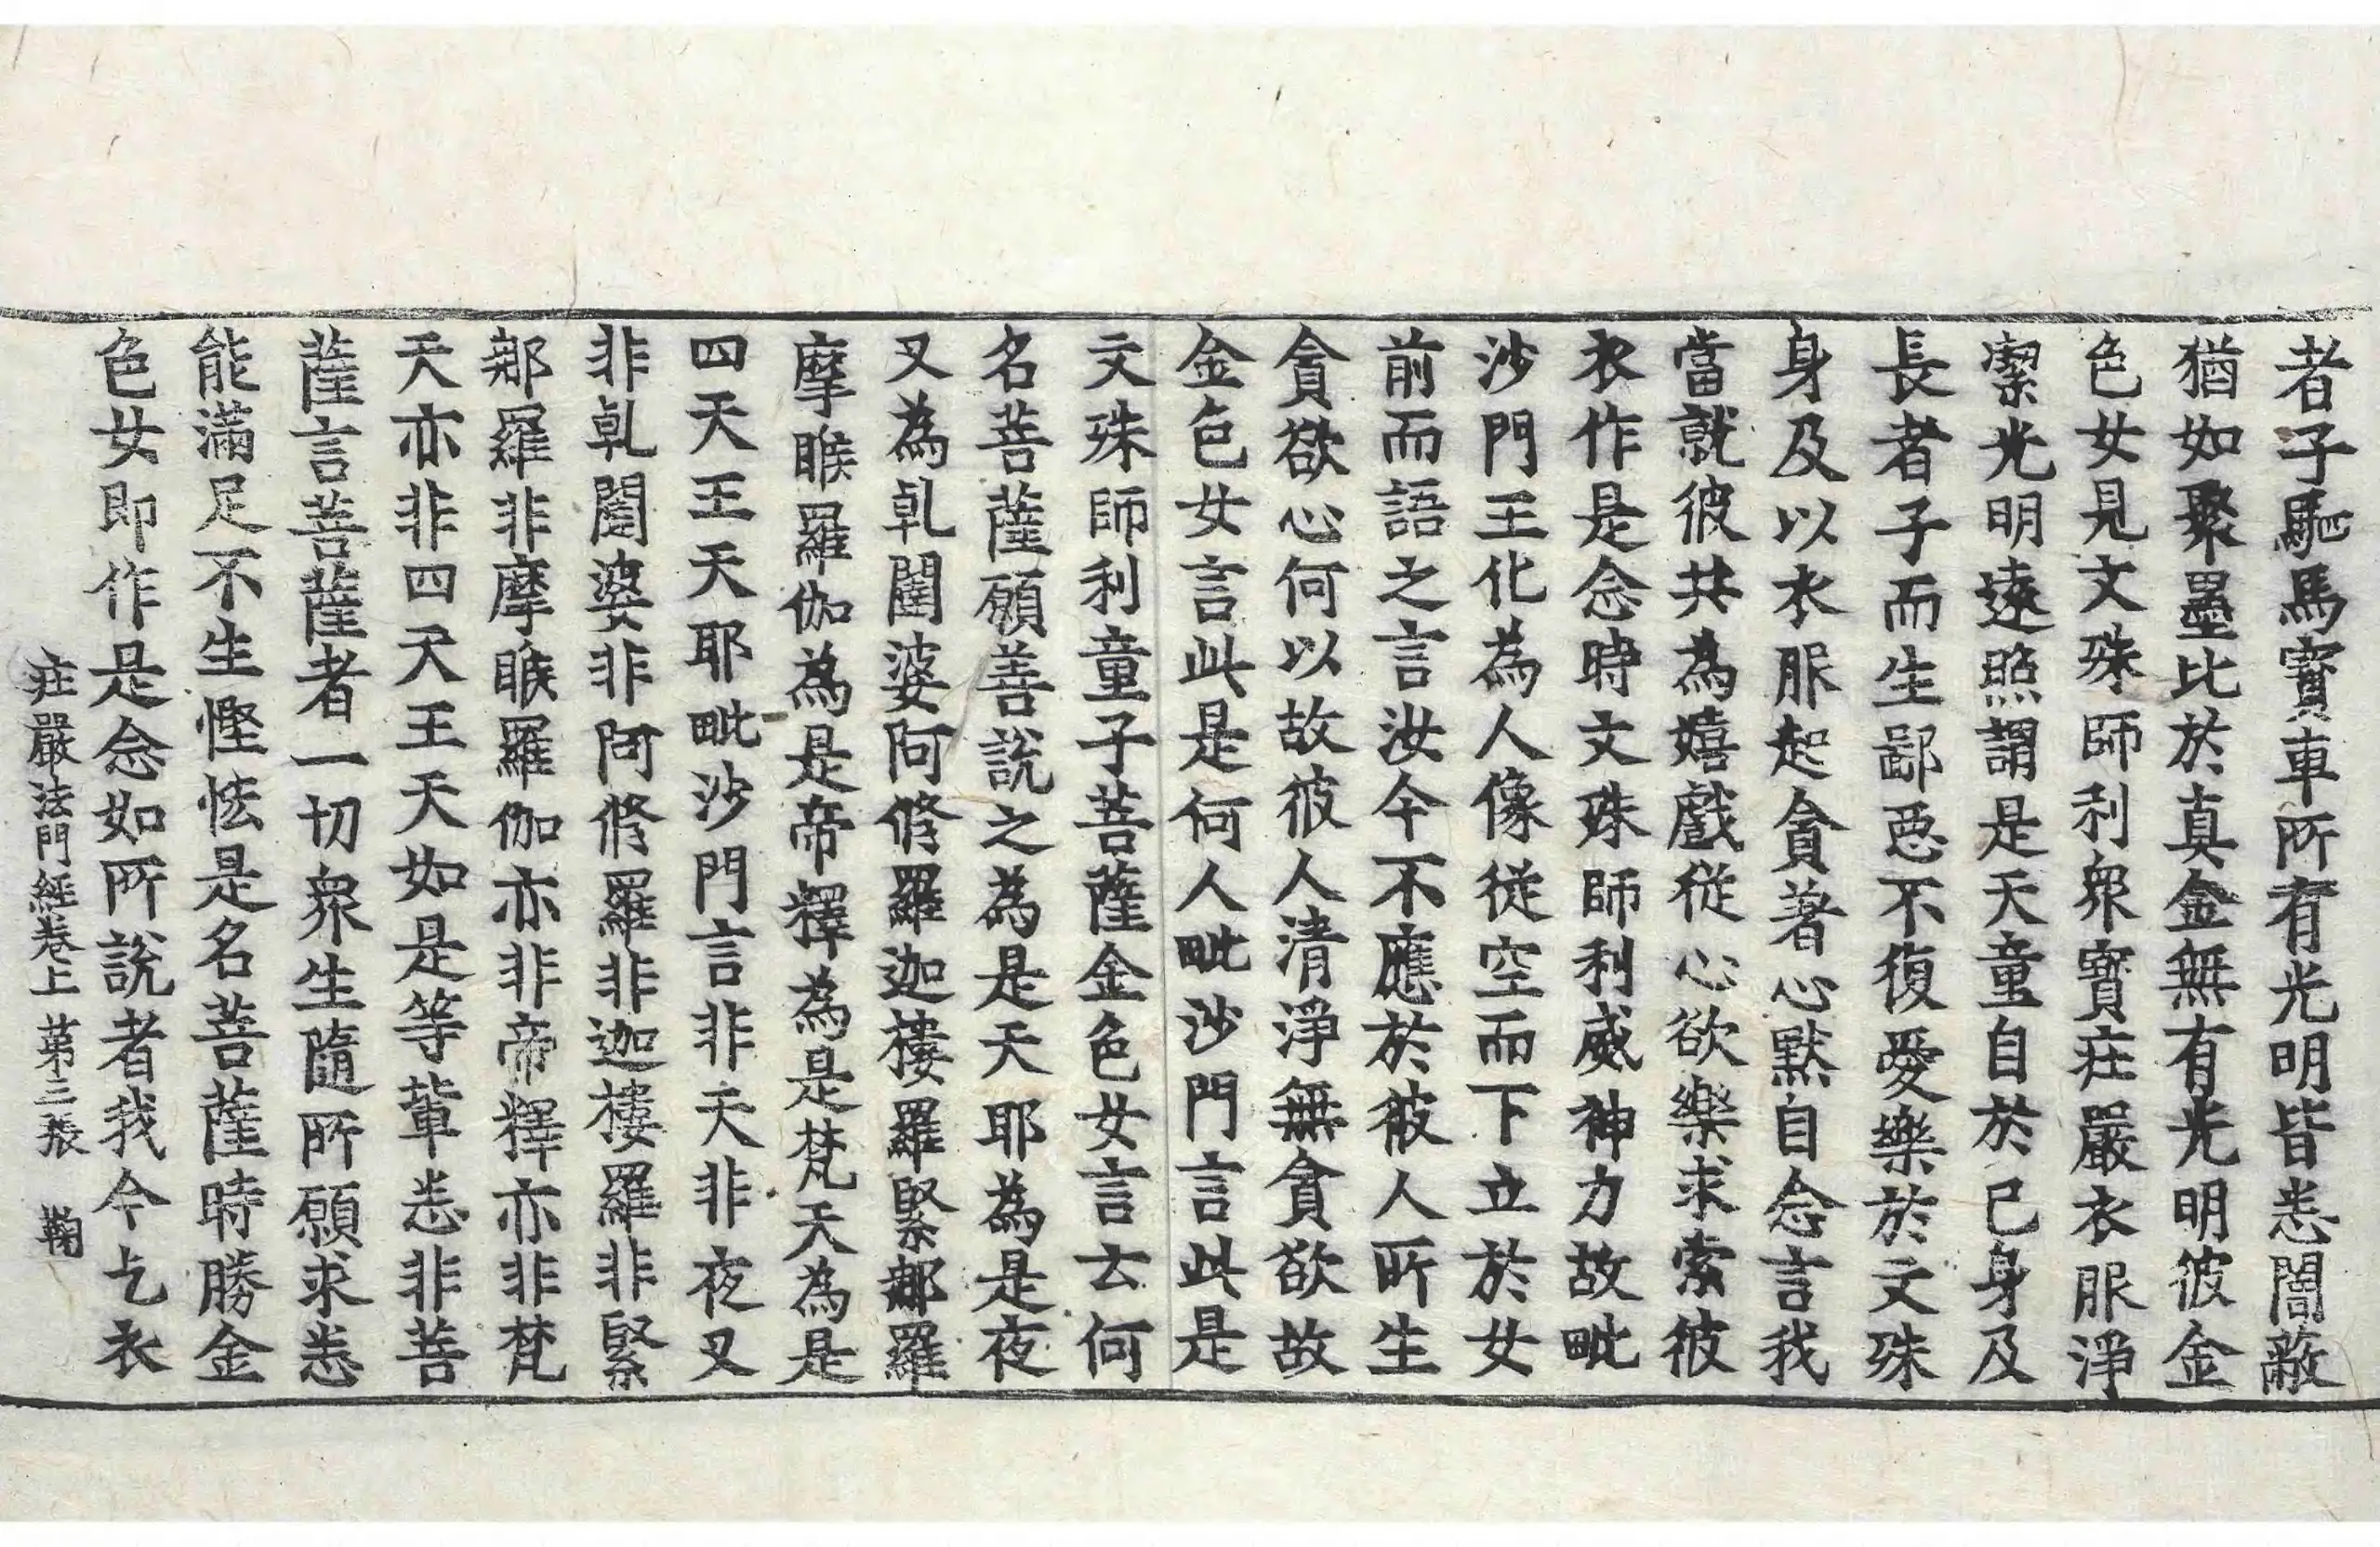 者子駈馬寶車所有光明皆悉闇蔽
猶如聚墨比於真金無有光明彼金
色女見文殊師利眾寶莊嚴衣服淨
潔光明遠照謂是天童自於己身及
長者子而生鄙惡不復愛樂於文殊
身及以衣服起貪著心默自念言我
當就彼共為嬉戲從心欲樂求索彼
衣作是念時文殊師利威神力故毗
沙門王化為人像從空而下立於女
前而語之言汝今不應於彼人所生
貪欲心何以故彼人清淨無貪欲故
金色女言此是何人毗沙門言此是
文殊師利童子菩薩金色女言云何
名菩薩願善說之為是天耶為是夜
叉為乹闥婆阿脩羅迦樓羅緊那羅
摩睺羅伽為是帝釋為是梵天為是
四天王天耶毗沙門言非天非夜叉
非乹闥婆非阿脩羅非迦樓羅非緊
那羅非摩睺羅伽亦非帝釋亦非梵
天亦非四天王天如是等輩悉非菩
薩言菩薩者一切眾生隨所願求悉
能滿足不生慳悋是名菩薩時勝金
色女即作是念如所說者我今乞衣
莊嚴法門經卷上 第三張 鞠